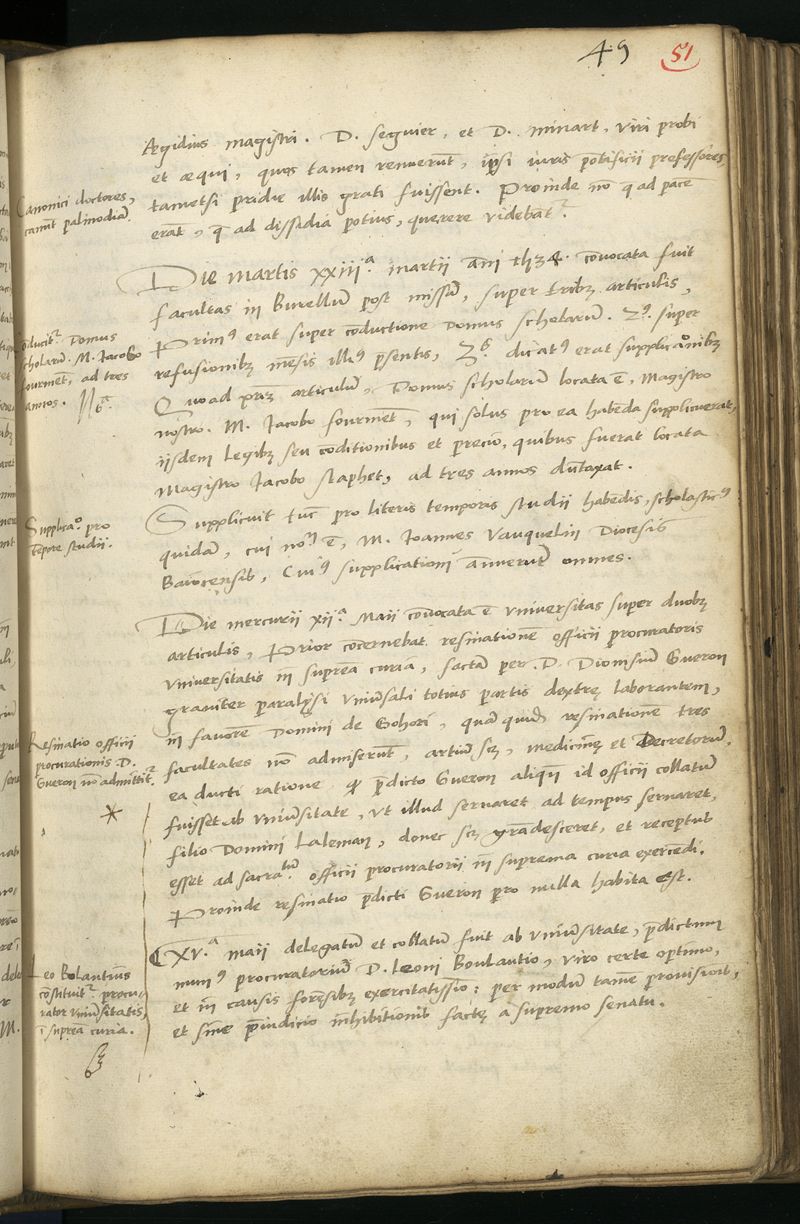 49 51
Ægidius magistri . D. seguier, et D. minart, viri probi
et æqui, quos tamen renuerūt, ipsi iuris pōtificii professores,
tametsi pridie illis grati fuissent. Proinde nō q̄ ad pacē
erat, q̄ ad dissidia potius, querere videbāt.
Canonici doctores,
canūt palinodiā.
Die martis xxiiiᵃ. martii āni 1534. cōvocata fuit
facultas in Burellū post missā, super tribꝫ articulis,
Primꝰ erat super cōductione Domus scholariū. 2ꝰ. super
refusionibꝫ mēsis illiꝰ p̄sentis, 3ꝰ dicatꝰ erat supplicaōnibꝫ
Quoad primū articulū, Domus scholariū locata ē, Magistro
nostro. M. Iacobo fourmēt, qui solus pro ea habēda supplicuerat,
iisdem legibꝫ seu cōditionibus et precio, quibus fuerat locata
Magistro Iacobo staphet, ad tres annos dūtaxat.
Cōducitʳ Domus
scholariū. M. Iacobo
fourmēt, ad tres
annos.
Supplicuit tūc pro literis temporis studii habēdis, scholasticꝰ
quidā, cui nōn ē, M. Ioannes Vauquelin Diocesis
Baiocensis, Cuiꝰ supplicationi annuerūt omnes.
Supplicaᵒ. pro
tēpore studii.
Die mercurii xiiᵃ Maii cōvocata ē vniuersitas super duobꝫ
articulis, Prior cōcernebat resinationē officii procuratoris
vniuersitatis in suprēa curia, factā per . D. Dionisiū Gueron
grauiter paralysi vniūsali totius partis dextrę laborantem,
in fauorē Domini de Gohori, quā quidē resinationē tres
facultates nō admiserūt, artiū scꝫ, medicinę et Decretorū,
ea ducti ratione q̄ p̄dicto Gueron aliqn̄ id officii collatū
fuisset ab vniūsitate, vt illud seruaret ad tempus seruaret,
filio Domini Laleman, donec scꝫ grādesceret, et receptus
esset ad sacratū officii procuratorii in suprema curia exercēdi.
Proinde resinatio p̄dicti Gueron pro nulla habita est.
Resinatio officii
procurationis D.
Gueron nō admittitʳ
XVᵃ maii delegatū et collatū fuit ab vniūsitate, p̄dictum
munꝰ procuratoriū D. Leoni Boulautio, viro certe optimo,
et in causis forēsibꝫ exercitatissīo: per modū tamē provisiōis,
et sine p̄iudicio inhibitionis factę a supremo senatu.
Leo Bolantius
cōstituitʳ procu-
rator vniūsitatis,
ī suprēa curia.